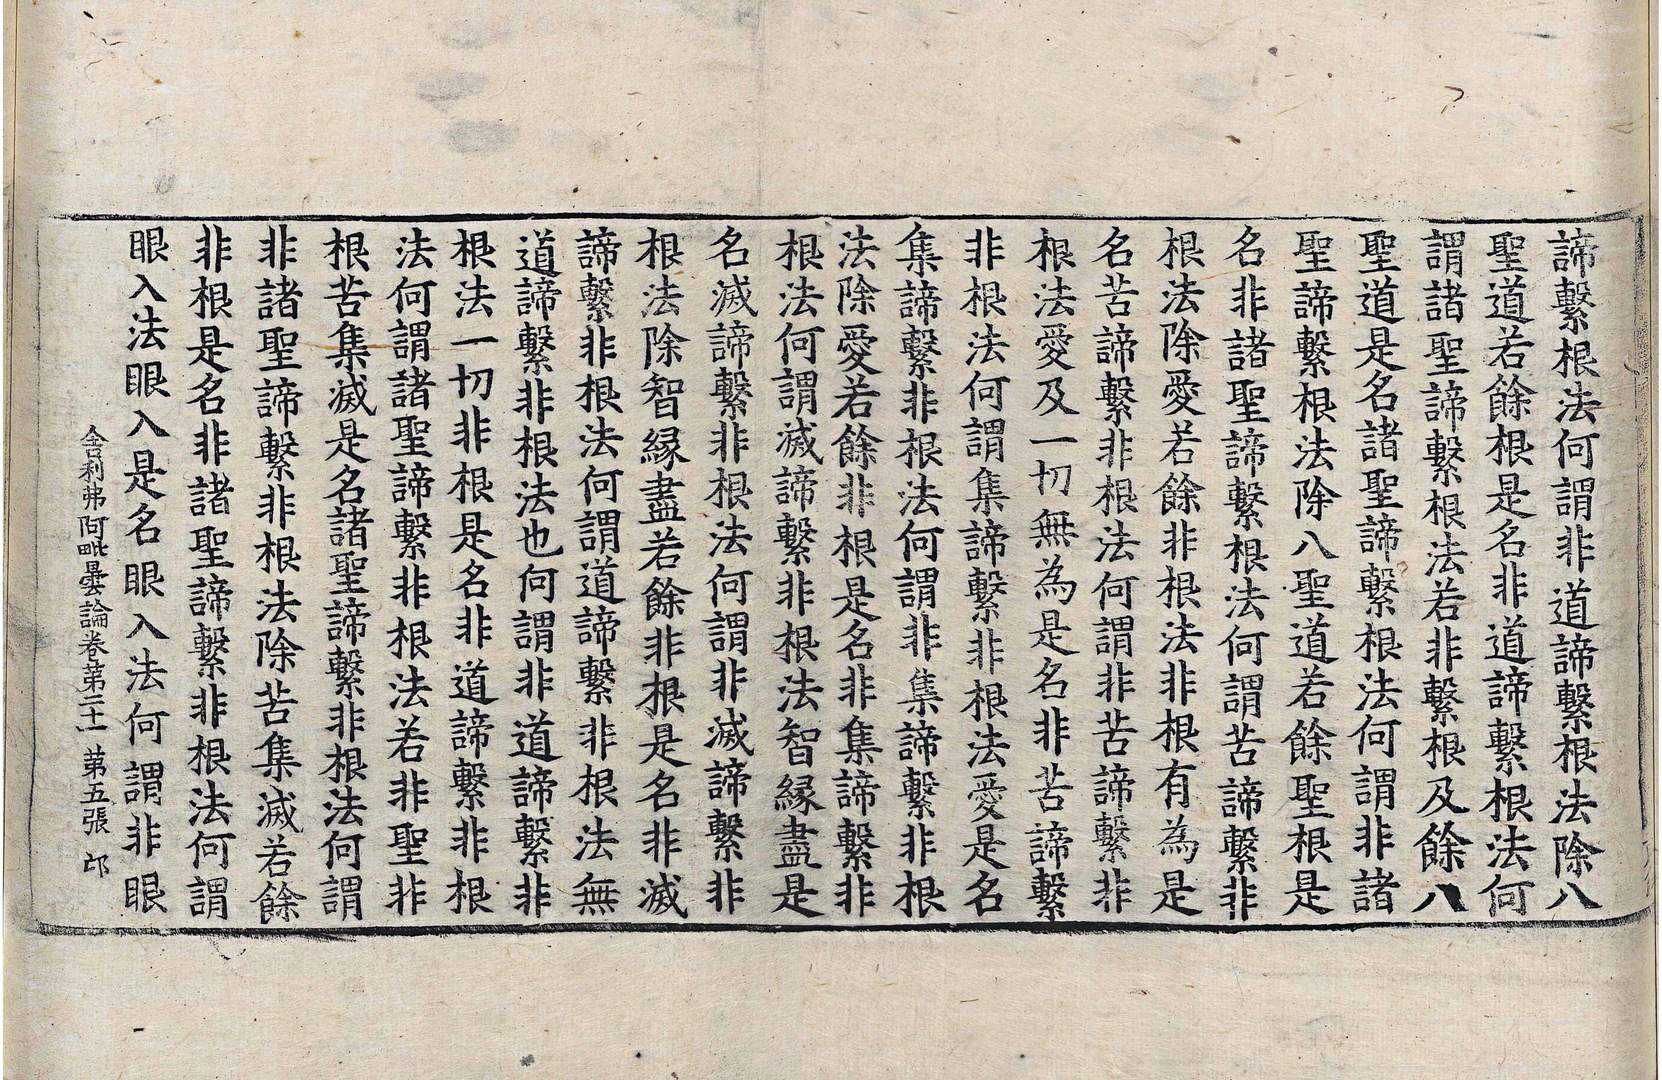 諦繫根法何謂非道諦繫根法除八
聖道若餘根是名非道諦繫根法何
謂諸聖諦繫根法若非繫根及餘八
聖道是名諸聖諦繫根法何謂非諸
聖諦繫根法除八聖道若餘聖根是
名非諸聖諦繫根法何謂苦諦繫非
根法除愛若餘非根法非根有為是
名苦諦繫非根法何謂非苦諦繫非
根法愛及一切無為是名非苦諦繫
非根法何謂集諦繫非根法愛是名
集諦繫非根法何謂非集諦繫非根
法除愛若餘非根是名非集諦繫非
根法何謂滅諦繫非根法智緣盡是
名滅諦繫非根法何謂非滅諦繫非
根法除智緣盡若餘非根是名非滅
諦繫非根法何謂道諦繫非根法無
道諦繫非根法也何謂非道諦繫非
根法一切非根是名非道諦繫非根
法何謂諸聖諦繫非根法若非聖非
根苦集滅是名諸聖諦繫非根法何謂
非諸聖諦繫非根法除苦集滅若餘
非根是名非諸聖諦繫非根法何謂
眼入法眼入是名眼入法何謂非眼
舍利弗阿毗曇論卷第二十一 第五張